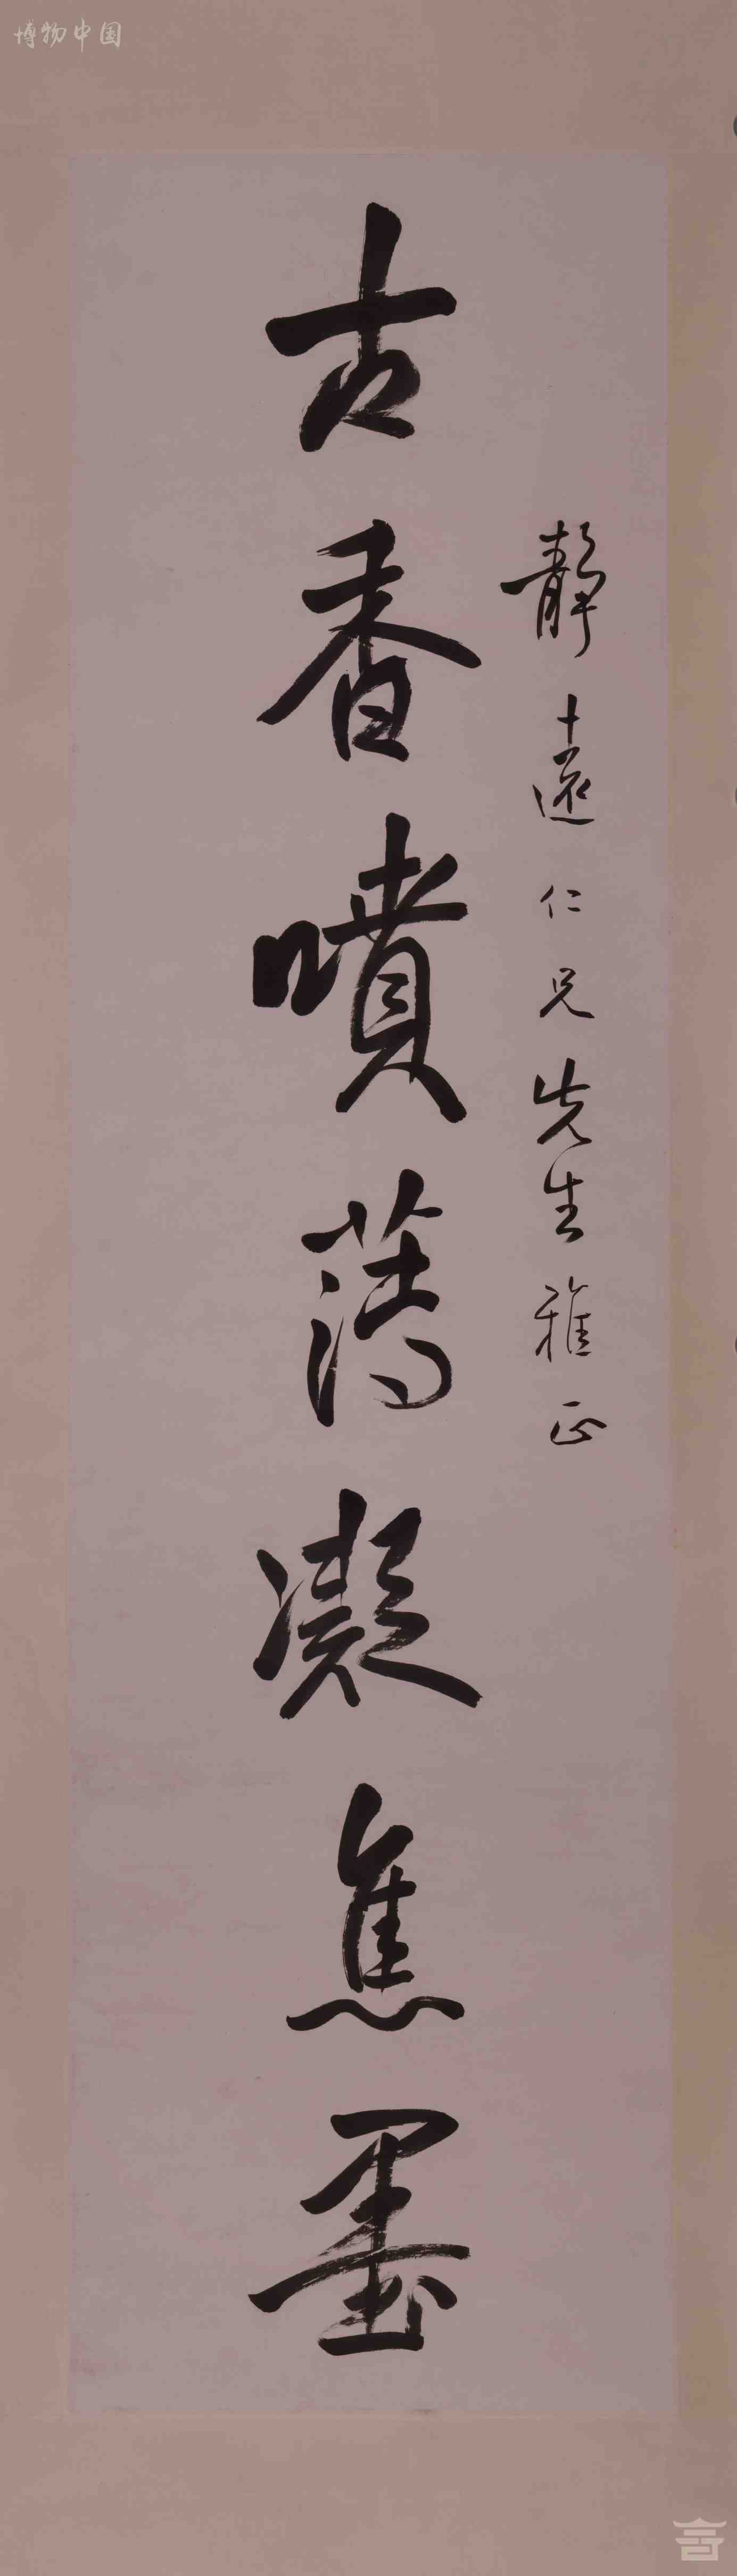 博物中国
靜遠仁兄先生雅正
古香噴薄凝焦墨